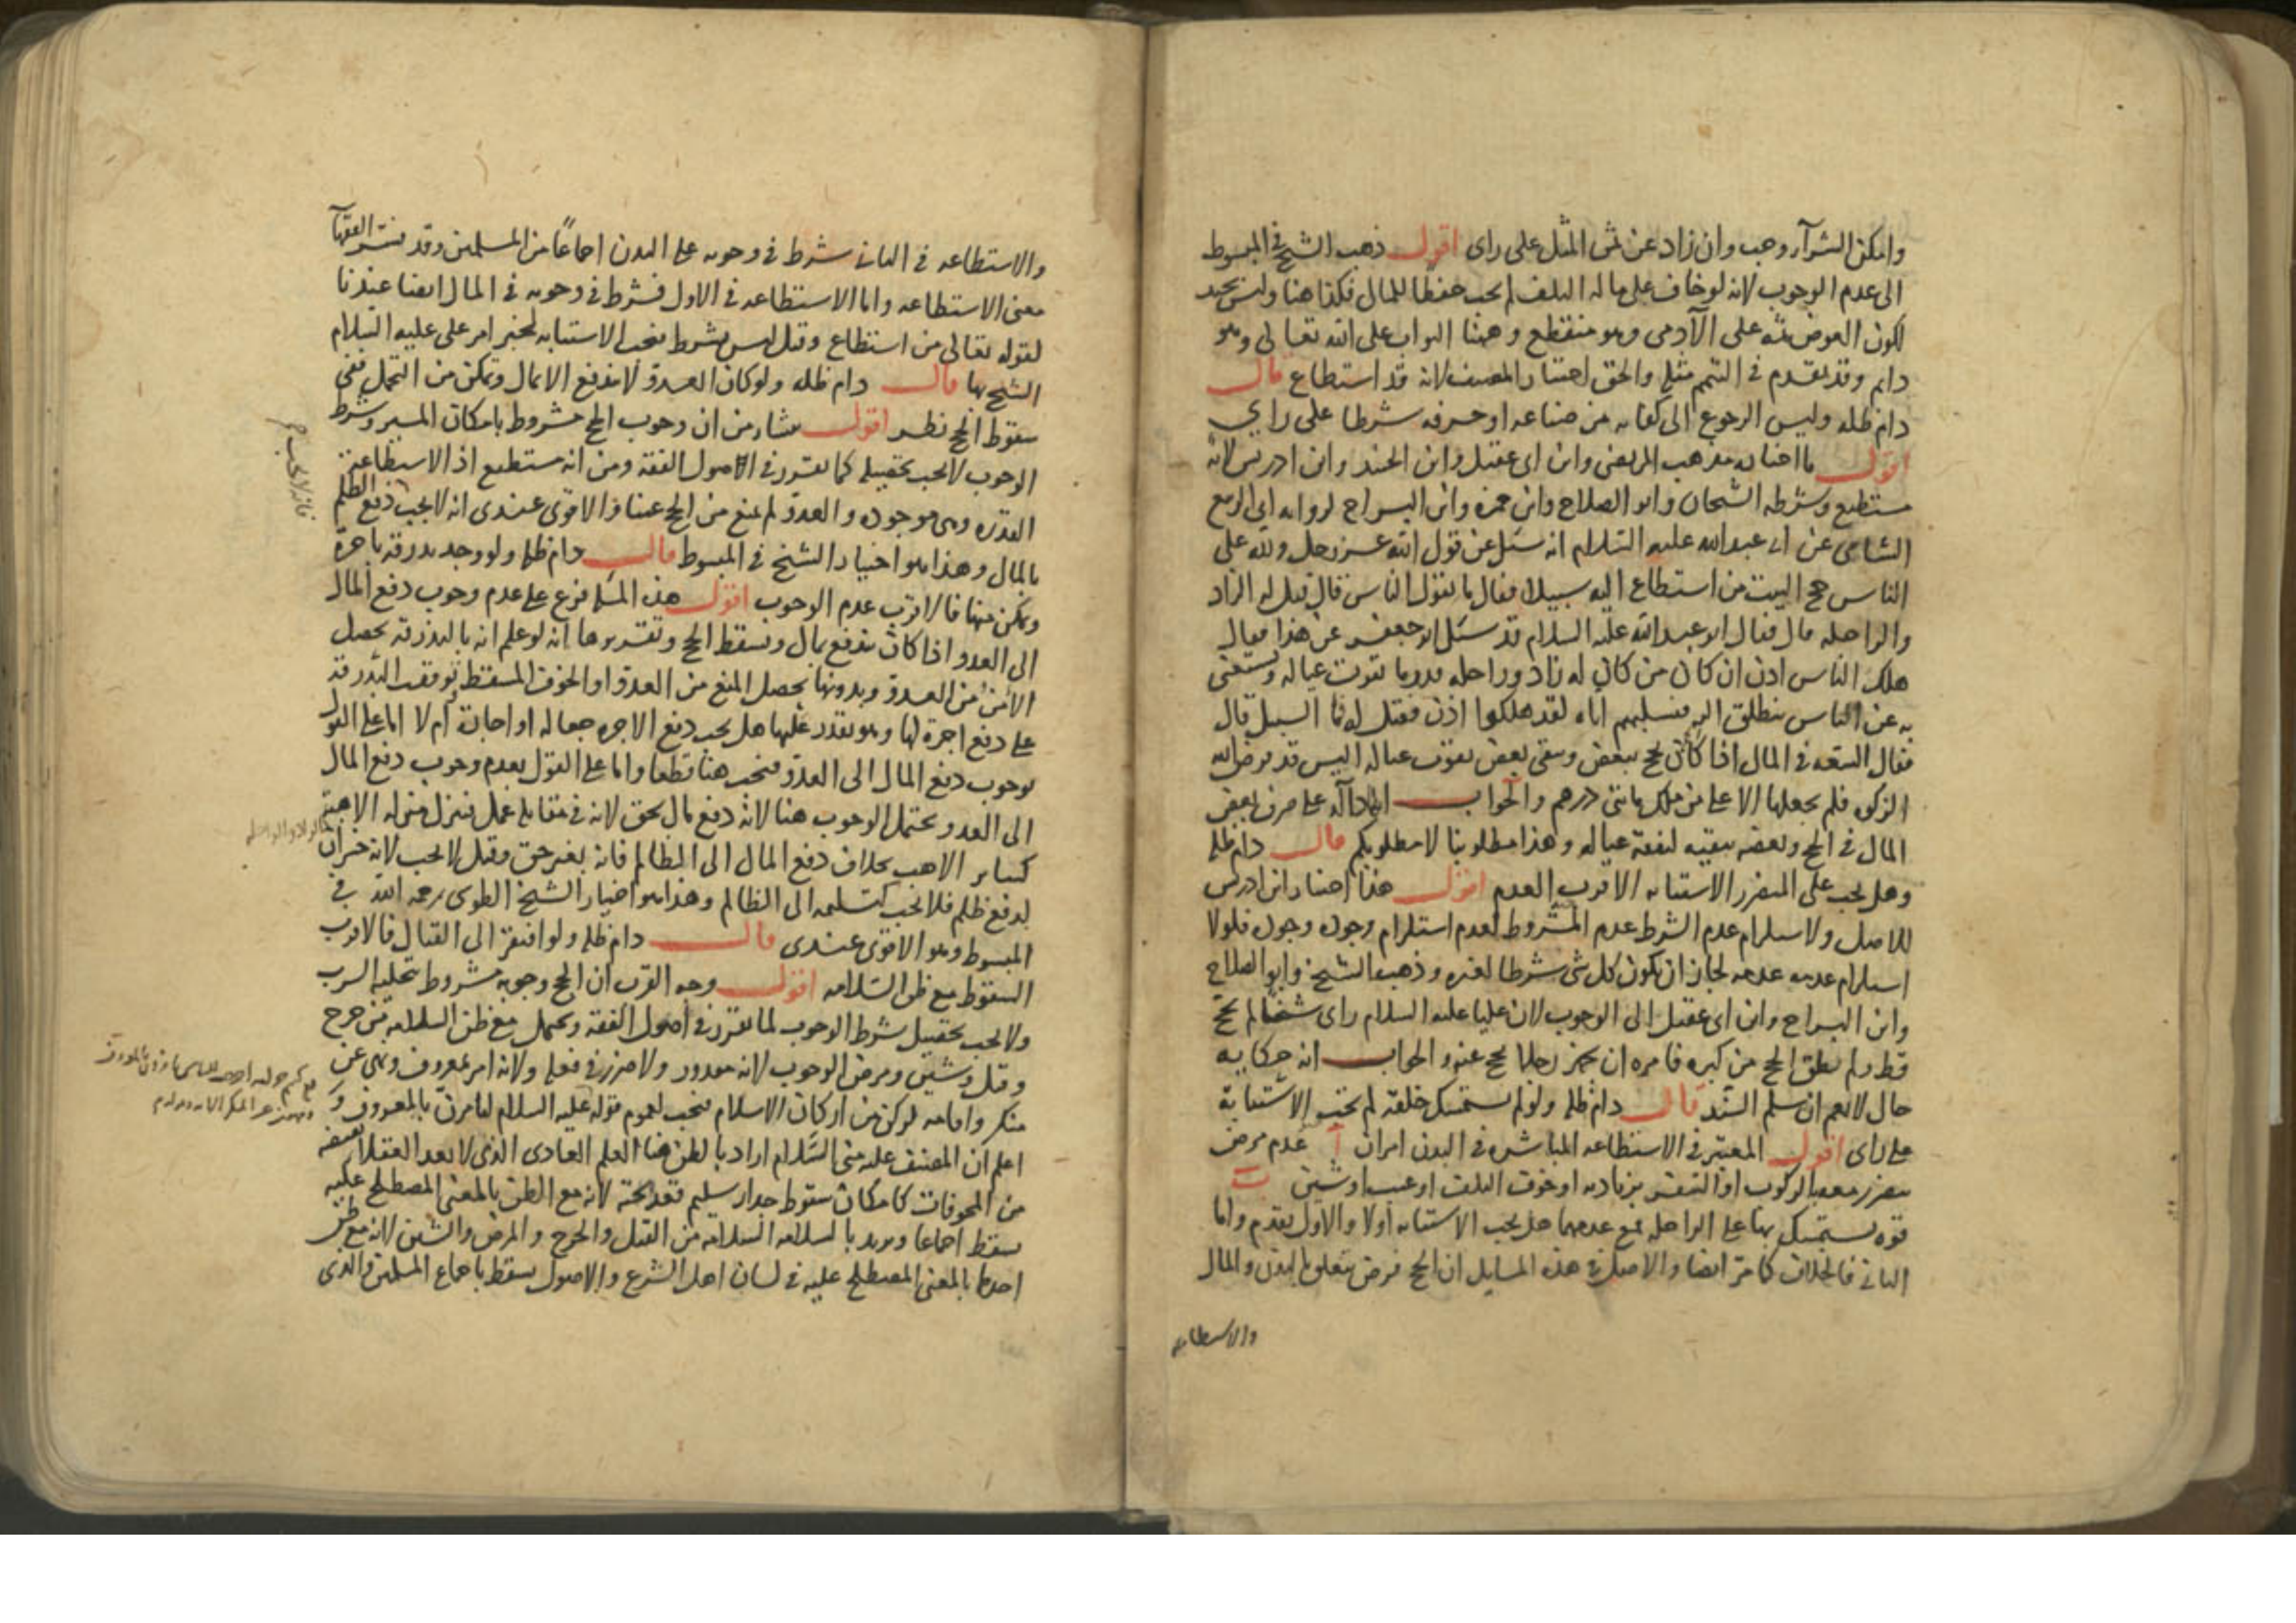 وامكن الشرآء وجب وان زاد عن ثمن المثل على راى اقول ذهب الشيخ في المبسوط
الى عدم الوجوب لانه لو خاف على ماله التلف لم يجب حفظا للمال فكذا هنا وليس بجيد
لكون العوض ثمه على الآدمى وهو منقطع وهنا الثواب على الله تعالى وهو
دايم وقد تقدم في التيمم مثله والحق اختيار المصنف لانه قد استطاع قال
دام ظله وليس الرجوع الى كفايه من صناعه او حرفه شرطا على راي
اقول ما اختاره مذهب المرتضى وابن ابى عقيل وابن الجنيد وابن ادريس لانه
مستطيع وشرطه الشيخان وابو الصلاح وابن حمزه وابن البراج لروايه ابي الربيع
الشامى عن ابى عبد الله عليه السلام انه سئل عن قول الله عز وجل ولله على
الناس حج البيت من استطاع اليه سبيلا فقال ما تقول الناس قال قيل له الزاد
والراحله قال فقال ابو عبد الله عليه السلام قد سئل ابو جعفر عن هذا فقال
هلك الناس اذن ان كان من كان له زاد وراحله قدر ما تقوت عياله ويستغنى
به عن الناس ينطلق اليه فيسلبهم اياه لقد هلكوا اذن فقيل له فما السبيل قال
فقال السعه في المال اذا كان يحج ببعض ويبقى بعض لقوت عياله اليس قد فرض الله
الزكوه فلم يجعلها الا على من ملك مائتى درهم والجواب انها دآله على صرف بعض
المال في الحج وبعضه يبقيه لنفقة عياله وهذا مطلوبنا لا مطلوبكم قال دام ظله
وهل يجب على المتضرر الاستنابه الاقرب العدم اقول هذا اختيار ابن ادريس
للاصل ولاستلزام عدم الشرط عدم المشروط لعدم استلزام وجوده وجوده فلولا
استلزام عدمه عدمه لجاز ان يكون كل شى شرطا لغيره وذهب الشيخ وابو الصلاح
وابن البراج وابن ابى عقيل الى الوجوب لان عليا عليه السلام راى شيخا لم يحج
قط ولم يطق الحج من كبره فامره ان يجهز رجلا يحج عنه والجواب انه حكايه
حال لا تعم ان سلم السند قال دام ظله ولو لم يستمسك خلقة لم يجب الاستنابة
على راى اقول المعتبر في الاستطاعه المباشره في البدن امران آ عدم مرض
يتضرر معه بالركوب او التضرر بزيادته او خوف التلف او عيب او شين ب
قوه يستمسك بها على الراحله فمع عدمهما هل يجب الاستنابه اولا والاول تقدم واما
الثانى فالخلاف كما مر ايضا والاصل في هذه المسايل ان الحج فرض يتعلق بالبدن والمال
والاستطاعه
والاستطاعه في الثانى شرط في وجوبه على البدن اجماعًا من المسلمين وقد فسر الفقهآ
معنى الاستطاعه واما الاستطاعه في الاول فشرط في وجوبه في المال ايضا عندنا
لقوله تعالى من استطاع وقيل ليس بشرط فيجب الاستنابه لخبر امر على عليه السلام
الشيخ بها قال دام ظله ولو كان العدو لا يندفع الا بمال وتمكن من التحمل ففى
سقوط الحج نظر اقول منشاوه من ان وجوب الحج مشروط بامكان المسير وشرط
الوجوب لا يجب تحصيله كما تقرر في الاصول الفقه ومن انه مستطيع اذ الاستطاعة
القدره وهى موجوده والعدو لم يمنع من الحج عينا والاقوى عندى انه لا يجب دفع الظلم
بالمال وهذا هو اختيار الشيخ في المبسوط قال دام ظله ولو وجد بدرقه باجرة
وتمكن منها فالاقرب عدم الوجوب اقول هذه المسئلة فرع على عدم وجوب دفع المال
الى العدو اذا كان يندفع بمال ويسقط الحج وتقريرها انه لو علم انه بالبذرقه يحصل
الامن من العدو وبدونها يحصل المنع من العدو او الخوف المسقط وتوقفت البذرقة
على دفع اجرة لها وهو يقدر عليها هل يجب دفع الاجره جعاله او اجارة ام لا اما على القول
بوجوب دفع المال الى العدو فيجب هنا قطعا واما على القول بعدم وجوب دفع المال
الى العدو يحتمل الوجوب هنا لانه دفع مال بحق لانه في مقابله عمل فينزل منزله الاهبة
كساير الاهب بخلاف دفع المال الى الظالم فانه بغير حق وقيل لا يجب لانه خسران
لدفع ظلم فلا يجب كتسليمه الى الظالم وهذا هو اختيار الشيخ الطوسى رحمه الله في
المبسوط وهو الاقوى عندى قال دام ظله ولو افتقر الى القتال فالاقرب
السقوط مع ظن السلامه اقول وجه القرب ان الحج وجوبه مشروط بتخليه السرب
ولا يجب تحصيل شرط الوجوب لما تقرر في اصول الفقه ويحتمل مع ظن السلامه من جرح
وقتل وشين ومرض الوجوب لانه مقدور ولا ضرر في فعله ولانه امر بمعروف ونهى عن
منكر واقامه لركن من اركان الاسلام فيجب لعموم قوله عليه السلام لتامرن بالمعروف و
اعلم ان المصنف عليه منى السلام اراد بالظن هنا العلم العادى الذى لا يعد العقلا نقيضه
من المخوفات كامكان سقوط جدار سليم قعد تحته لانه مع الظن بالمعنى المصطلح عليه
يسقط اجماعا ويريد بالسلامه السلامه من القتل والجرح والمرض والشين لانه مع ظن
احدها بالمعنى المصطلح عليه في لسان اهل الشرع والاصول يسقط باجماع المسلمين والذى
فانه لا يجب